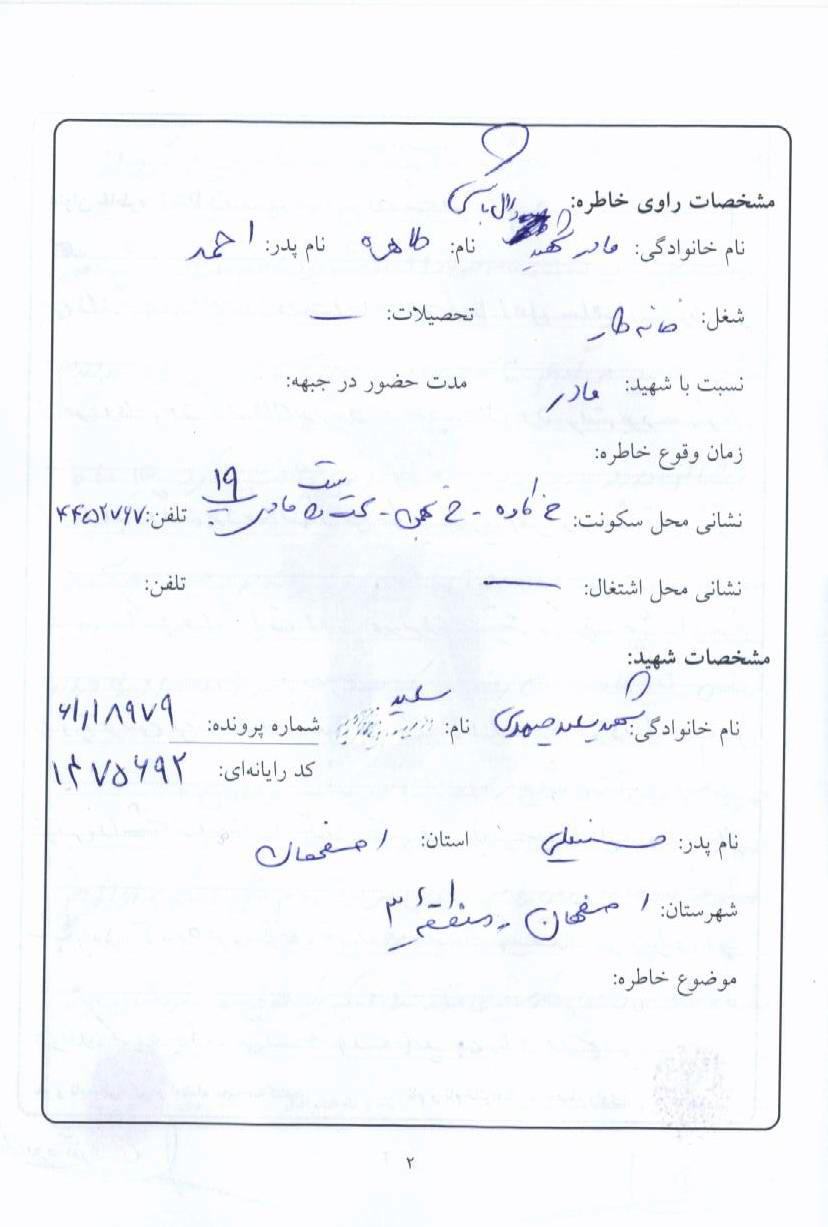 مشخصات راوی خاطره:
نام خانوادگی: مادر شهید نام: طاهره نام پدر: احمد
شغل: خانه دار تحصیلات: —
نسبت با شهید: مادر مدت حضور در جبهه:
زمان وقوع خاطره:
نشانی محل سکونت: خ کاوه - خ - - ۱۹ تلفن: ۴۴۵۲۷۶۷
نشانی محل اشتغال: — تلفن:
مشخصات شهید:
نام خانوادگی: شهید سعید صمدی نام: سعید شماره پرونده: ۶۱/۱۸۹۷۹
کد رایانه‌ای: ۱۴۷۵۶۹۲
نام پدر: حسنعلی استان: اصفهان
شهرستان: اصفهان - منطقه ۳
موضوع خاطره:
۲